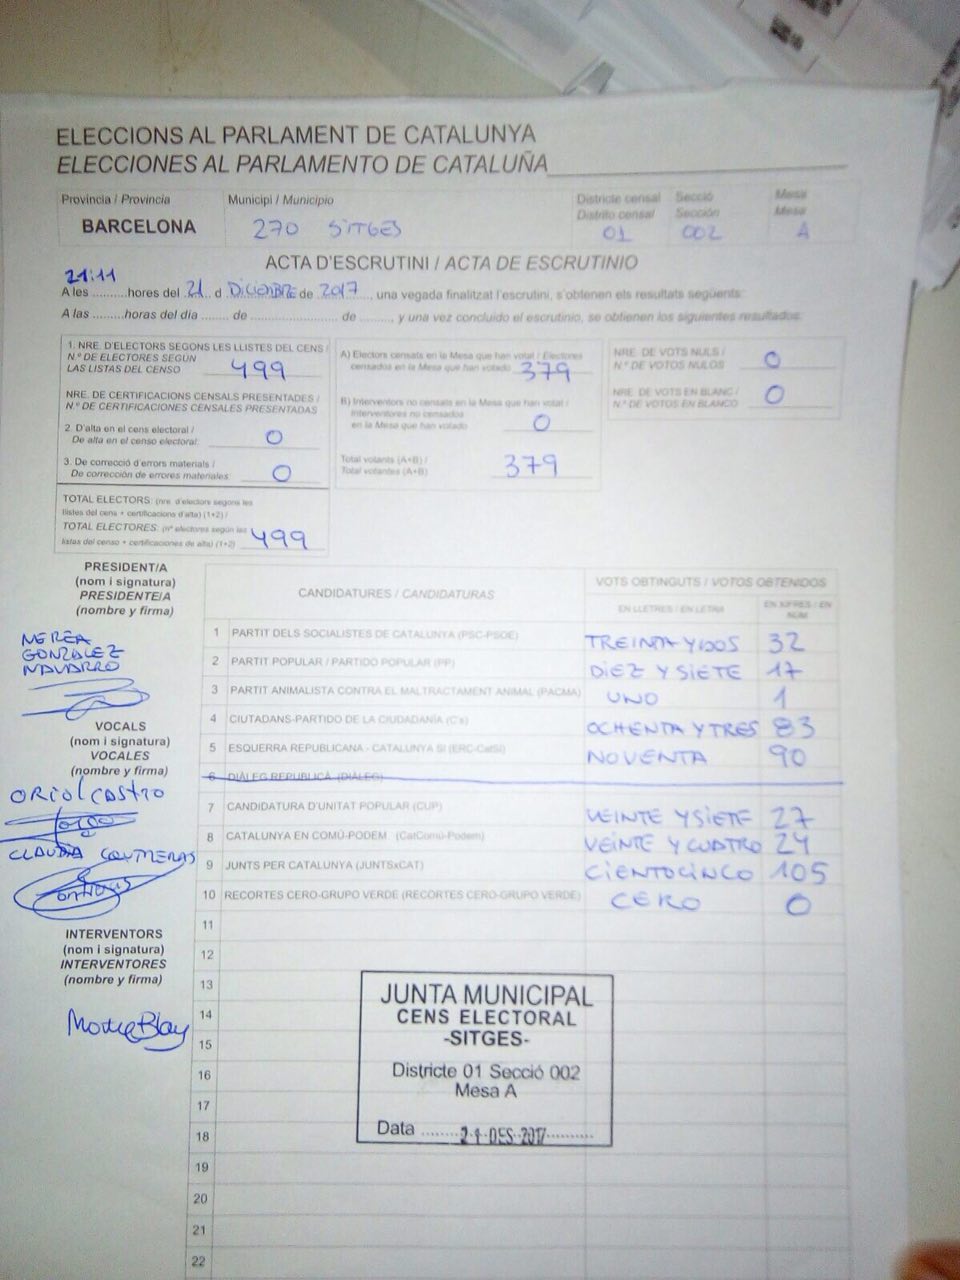 ELECCIONS AL PARLAMENT DE CATALUNYA
ELECCIONES AL PARLAMENTO DE CATALUÑA
Provincia / Provincia
BARCELONA
Municipi / Municipio
270 SITGES
Districte censal
Distrito censal
01
Secció
Sección
002
Mesa
Mesa
A
ACTA D'ESCRUTINI / ACTA DE ESCRUTINIO
21:11
A les ..........hores del 21 d DICIEMBRE de 2017, una vegada finalitzat l'escrutini, s'obtenen els resultats següents:
A las .........horas del día ...... de ........................ de ........, y una vez concluido el escrutinio, se obtienen los siguientes resultados:
1. NRE. D'ELECTORS SEGONS LES LLISTES DEL CENS /
N.º DE ELECTORES SEGÚN
LAS LISTAS DEL CENSO 499
NRE. DE CERTIFICACIONS CENSALS PRESENTADES /
N.º DE CERTIFICACIONES CENSALES PRESENTADAS
2. D'alta en el cens electoral /
De alta en el censo electoral: 0
3. De correcció d'errors materials /
De corrección de errores materiales 0
TOTAL ELECTORS: (nre. d'electors segons les
llistes del cens + certificacions d'alta) (1+2) /
TOTAL ELECTORES: (nº electores según las
listas del censo + certificaciones de alta) (1+2) 499
A) Electors censats en la Mesa que han votat / Electores
censados en la Mesa que han votado 379
B) Interventors no censats en la Mesa que han votat /
Interventores no censados
en la Mesa que han votado 0
Total votants (A+B) /
Total votantes (A+B) 379
NRE. DE VOTS NULS /
N.º DE VOTOS NULOS 0
NRE. DE VOTS EN BLANC /
N.º DE VOTOS EN BLANCO 0
PRESIDENT/A
(nom i signatura)
PRESIDENTE/A
(nombre y firma)
NEREA
GONZALEZ
NAVARRO
VOCALS
(nom i signatura)
VOCALES
(nombre y firma)
ORIOL CASTRO
CLAUDIA CONTRERAS
INTERVENTORS
(nom i signatura)
INTERVENTORES
(nombre y firma)
CANDIDATURES / CANDIDATURAS
VOTS OBTINGUTS / VOTOS OBTENIDOS
EN LLETRES / EN LETRA
EN XIFRES / EN NÚM.
1 PARTIT DELS SOCIALISTES DE CATALUNYA (PSC-PSOE) TREINTA Y DOS 32
2 PARTIT POPULAR / PARTIDO POPULAR (PP) DIEZ Y SIETE 17
3 PARTIT ANIMALISTA CONTRA EL MALTRACTAMENT ANIMAL (PACMA) UNO 1
4 CIUTADANS-PARTIDO DE LA CIUDADANÍA (C's) OCHENTA Y TRES 83
5 ESQUERRA REPUBLICANA - CATALUNYA SÍ (ERC-CatSí) NOVENTA 90
6 DIÀLEG REPUBLICÀ (DIÀLEG)
7 CANDIDATURA D'UNITAT POPULAR (CUP) VEINTE Y SIETE 27
8 CATALUNYA EN COMÚ-PODEM (CatComú-Podem) VEINTE Y CUATRO 24
9 JUNTS PER CATALUNYA (JUNTSxCAT) CIENTO CINCO 105
10 RECORTES CERO-GRUPO VERDE (RECORTES CERO-GRUPO VERDE) CERO 0
11
12
13
14
15
16
17
18
19
20
21
22
JUNTA MUNICIPAL
CENS ELECTORAL
-SITGES-
Districte 01 Secció 002
Mesa A
Data ....... 21 DES 2017 ..........